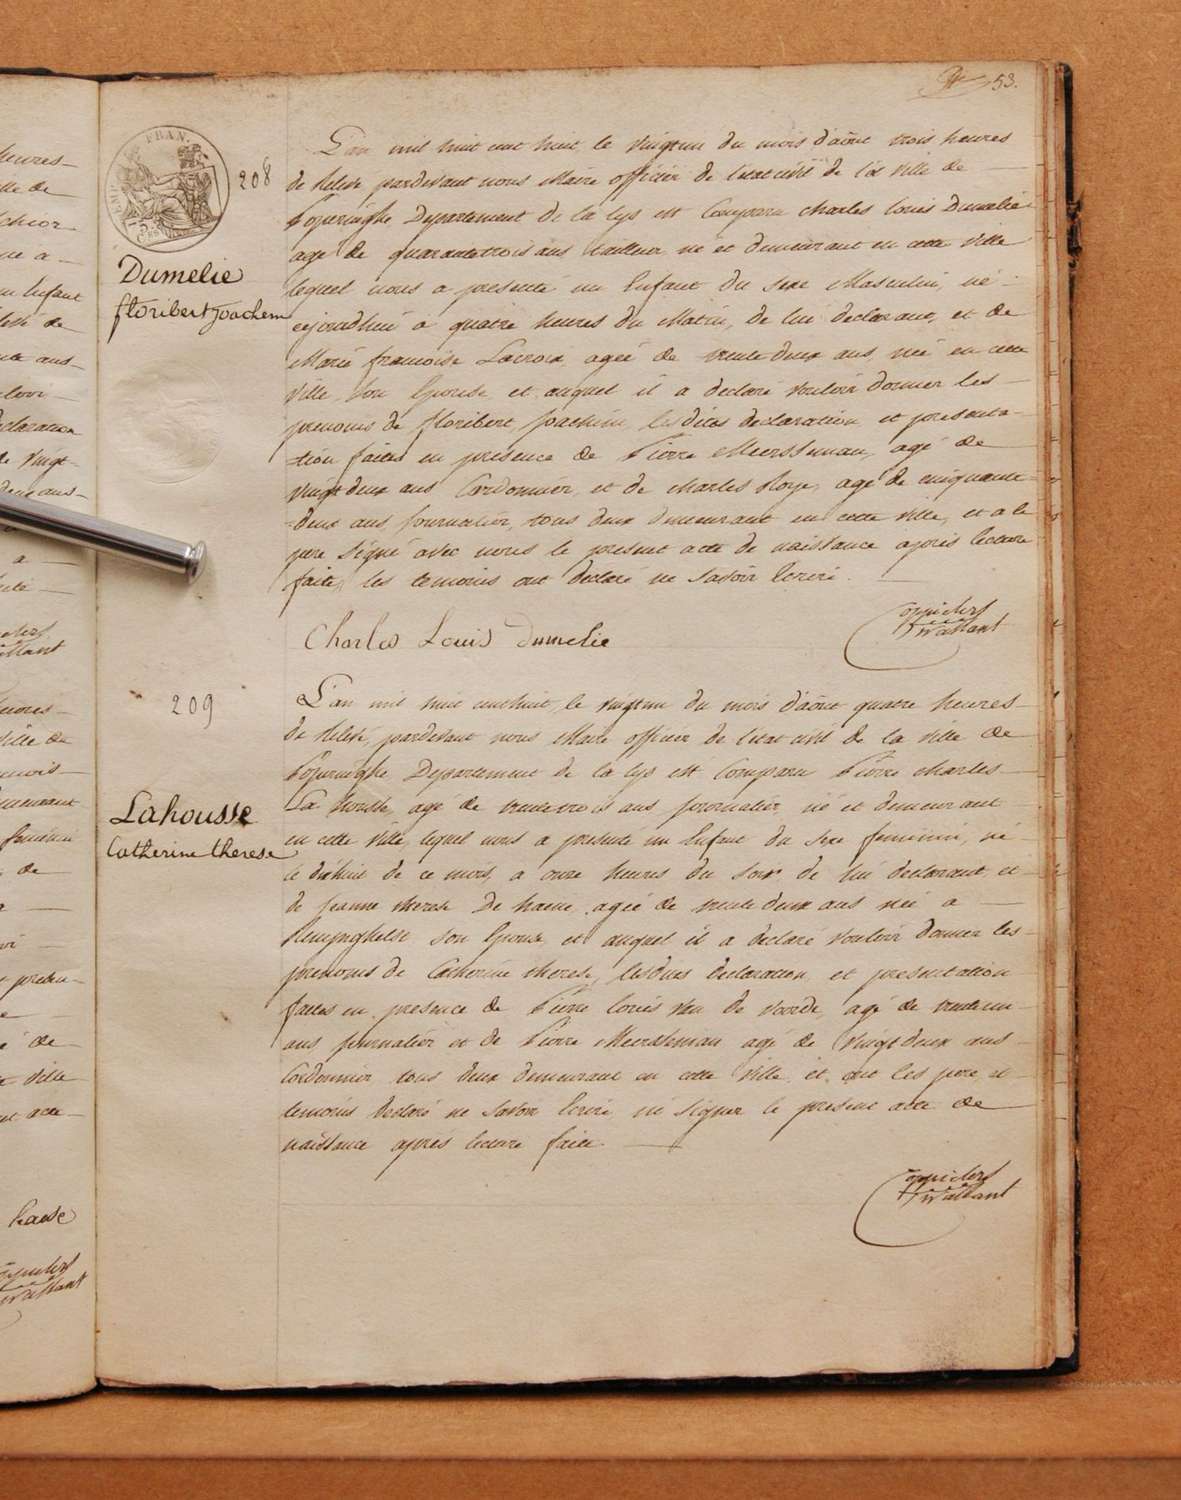 53.
208
Dumelie
floribert joachem
L'an mil huit cent huit, le vingtun du mois d'août trois heures
de relevé, pardevant nous Maire officier de l'état civil de la ville de
Poperinghe Departement de la Lys est Comparu Charles Louis Dumelie
agé de quarantetrois ans, tailleur né et demeurant en cette ville
lequel nous a presenté un Enfant du Sexe Masculin, né
cejourdhui à quatre heures du Matin, de lui declarant, et de
Marie françoise Lacroix, agée de trente deux ans, née en cette
ville, son Epouse, et auquel il a declaré vouloir donner les
prenoms de floribert, Joachim, lesdites declaration et presenta-
tion faites en presence de Pierre Meersseman, agé de
vingtdeux ans Cordonnier, et de Charles Roye, agé de cinquante
deux ans, journalier, tous deux demeurant en cette ville, et a le
pere Signé avec nous le present acte de naissance après lecture
faite, les temoins ont declaré ne Savoir Ecrire.
Charles Louis Dumelie
209
Lahousse
Catherine therese
L'an mil huit cent huit, le vingtun du mois d'août quatre heures
de relevé, pardevant nous Maire officier de l'état civil de la ville de
Poperinghe Departement de la Lys est Comparu Pierre Charles
La housse, agé de trentetrois ans, journalier, né et demeurant
en cette ville, lequel nous a presenté un Enfant du Sexe feminin, né
le dixhuit de ce mois, a onze heures du Soir de lui declarant, et
de Jeanne therese De haene, agée de trente deux ans née a
Reninghelst son Epouse, et auquel il a declaré vouloir donner les
prenoms de Catherine therese, lesdites declaration et presentation
faites en presence de Pierre Louis Van De Voorde, agé de trente un
ans journalier et de Pierre Meersseman agé de vingt deux ans
Cordonnier, tous deux demeurant en cette ville, et ont les pere et
temoins declaré ne Savoir Ecrire, ni Signer le present acte de
naissance après lecture faite.